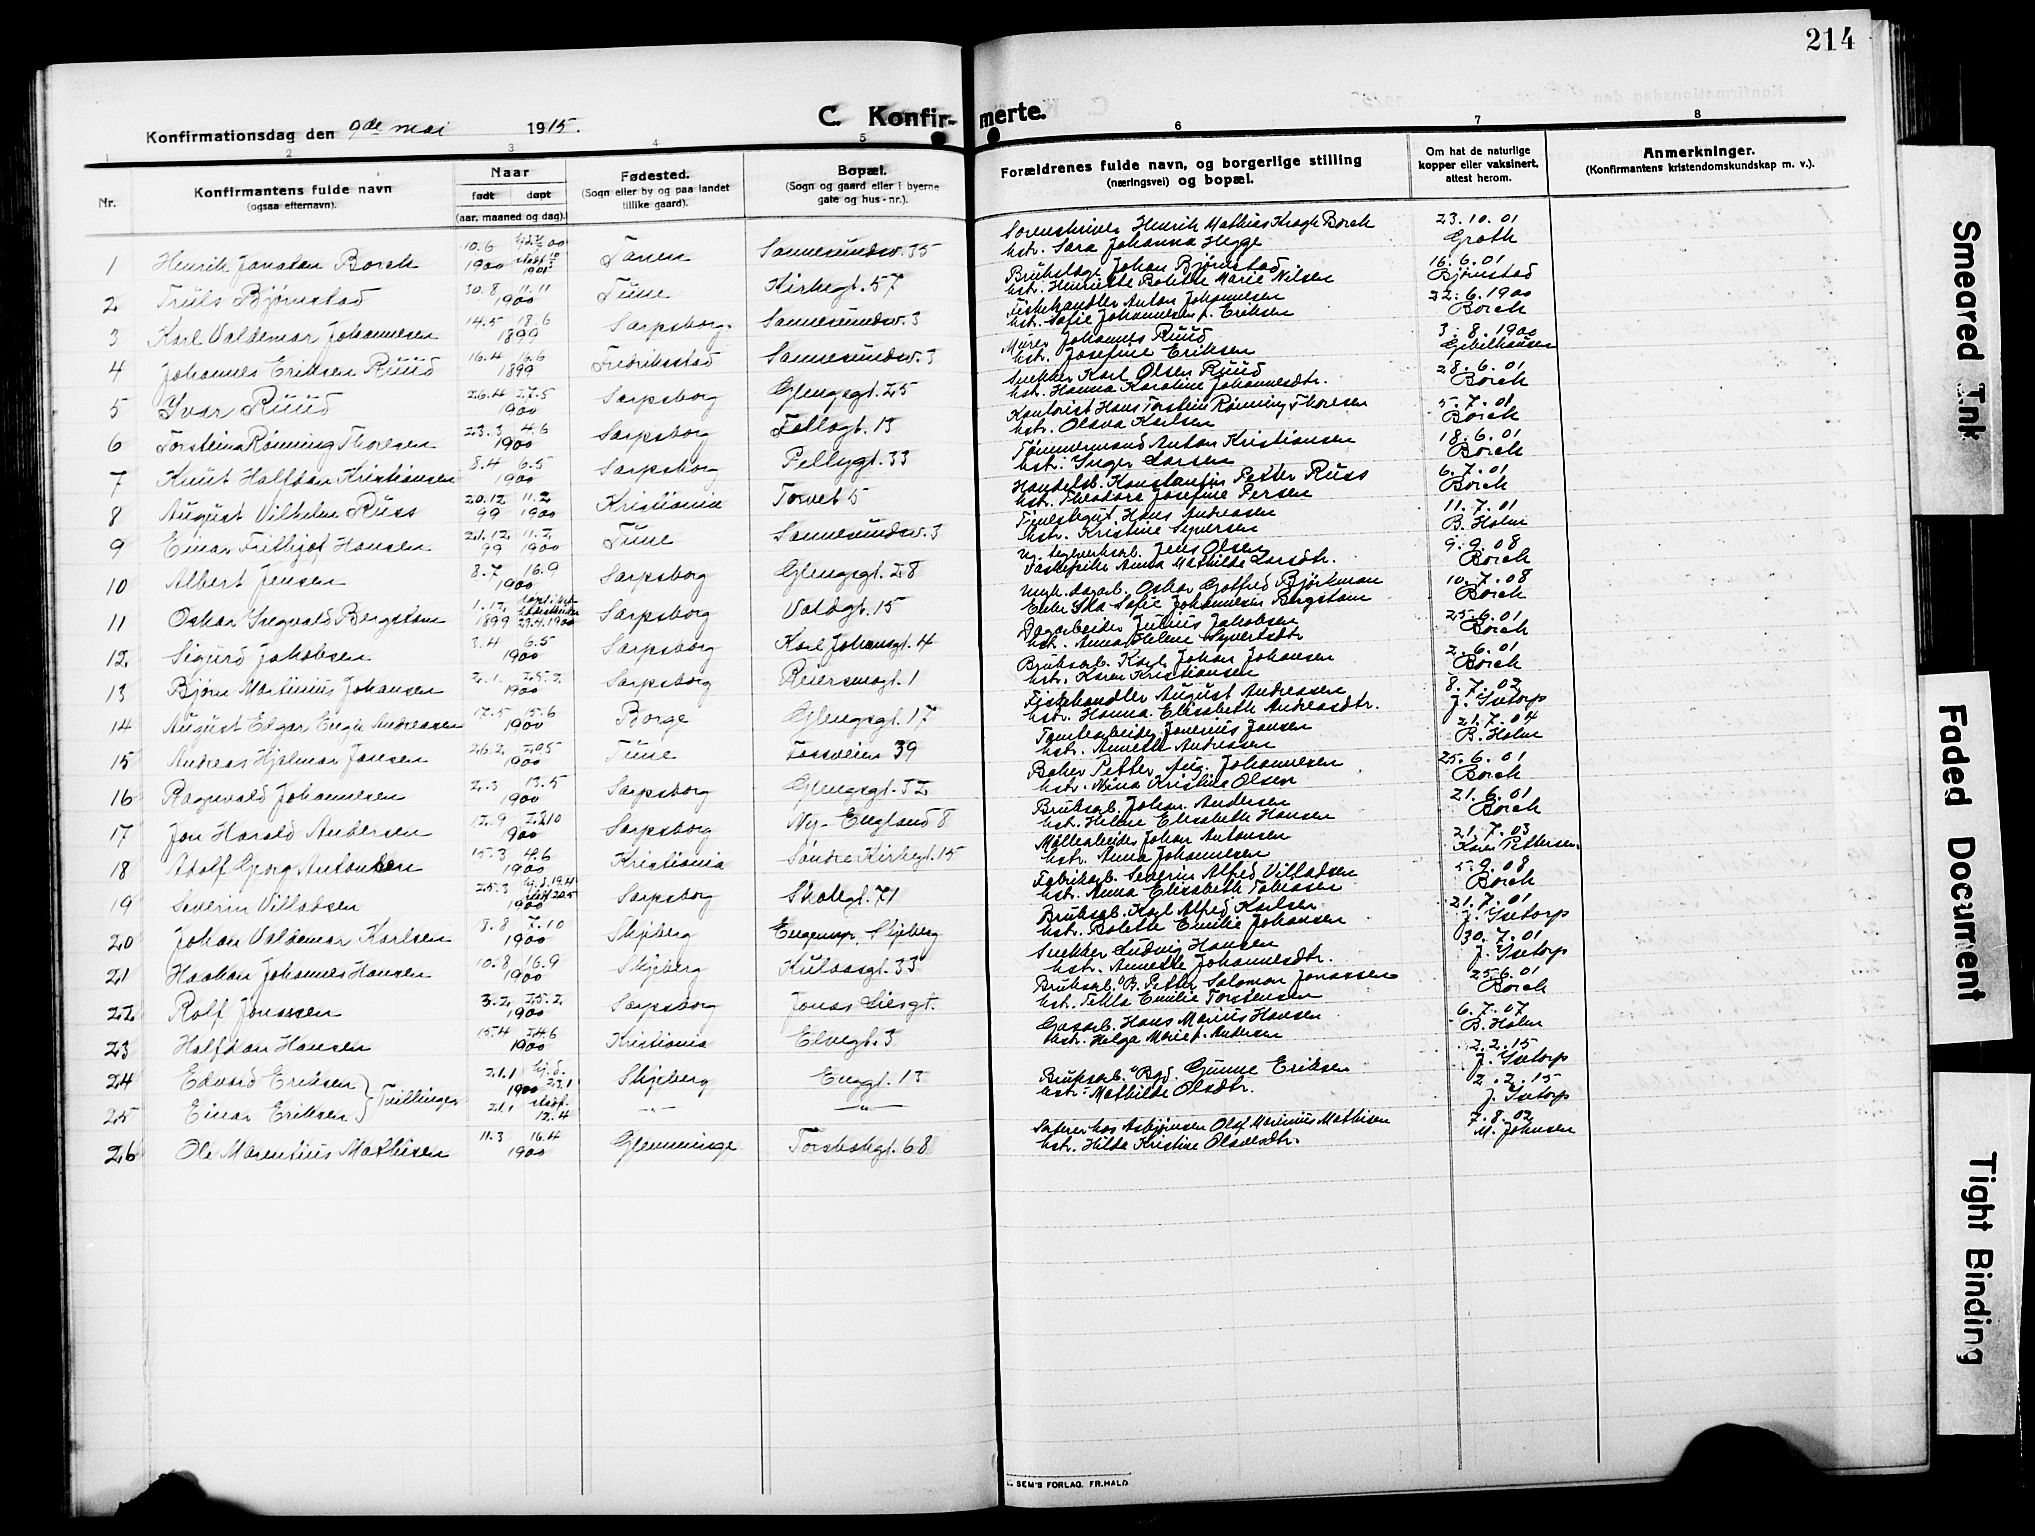 214
C. Konfirmerte.
Konfirmationsdag den 9de mai 1915.
1 2 3 4 5 6 7 8
Nr.
Konfirmantens fulde navn
(ogsaa efternavn).
Naar
født døpt
(aar, maaned og dag).
Fødested.
(Sogn eller by og paa landet
tillike gaard).
Bopæl.
(Sogn og gaard eller i byerne
gate og hus-nr.).
Forældrenes fulde navn, og borgerlige stilling
(næringsvei) og bopæl.
Om hat de naturlige
kopper eller vaksinert,
attest herom.
Anmerkninger.
(Konfirmantens kristendomskundskap m. v.).
1 Henrik Jonatan Borch 10.6 1900 Tanen Sannesundsv. 35 Sorenskriver Henrik Mathias Kragh Borch 23.10.01
hstr. Sara Johanna Hegge Groth
2 Truls Bjørnstad 30.8 11.11 1900 Tune Kirkegt. 57 Brukslage Johan Bjørnstad 16.6.01
hstr. Henriette Bolette Marie Nilsen Bjørnstad
3 Karl Valdemar Johannesen 14.5 18.6 1899 Sarpsborg. Sannesundsv. 3 Fiskehandler Anton Johannesen 22.6.1900
hstr. Sofie Johannesen f. Eriksen Borch
4 Johannes Eriksen Ruud 16.4 16.6 1899 Fredriksstad Sannesundsv. 3 Murer Johannes Ruud 3.8.1900
hstr. Josefine Eriksen Gibelhausen
5 Yvar Ruud 26.4 27.5 1900 Sarpsborg Glengsgt. 25 Snekker Karl Olsen Ruud 28.6.01
hstr. Hanna Karoline Johannesdtr. Borch
6 Torstein Rønning Thoresen 23.3 4.6 1900 Sarpsborg Follogt. 13 Kontorist Hans Torstein Rønning Thoresen 5.7.01
hstr. Olava Karlsen Borch
7 Knut Halfdan Kristiansen 8.4 6.5 1900 Sarpsborg Pellygt. 33 Tømmermand Anton Kristiansen 18.6.01
hstr. Inger Larsen Borch
8 August Vilhelm Russ 20.12 99 11.2 1900 Kristiania Torvet 5 Handelsb. Konstantin Petter Russ 6.7.01
hstr. Theodora Josefine Persen Borch
9 Einar Frithjof Hansen 21.12. 99 11.2. 1900 Tune Sannesundsv. 3 Hans Andreasen 11.7.01
hstr. Kristine Syversen B. Holm
10 Albert Jensen 8.7 16.9 1900 Sarpsborg Glengsgt. 28 Ug. teglverksarb. Jens Olsen 9.9.08
Anna Mathilde Larsdtr. Borch
11 Oskar Ingvald Bergstøm 1.12. 1899 29.4.1900 Sarpsborg Valdgt. 15 Ungk. dagarb. Oskar Gotfred Bjørkman 10.7.08
Enke Ida Sofie Johannesen Bergstøm Borch
12. Sigurd Jakobsen 3.4 6.5 1900 Sarpsborg Karl Johansgt. 4 Dagarbeider Julius Jakobsen 25.6.01
hst. Anna Helene Syvertsdtr Borch
13 Bjørn Martinius Johansen 2.1. 25.2. 1900 Sarpsborg Reiersmogt. 1 Bruksarb. Karl Johan Johansen 2.6.01
hstr. Karen Kristiansen Borch
14 August Edgar Engh Andreasen 17.5 15.6 1900 Borge Glengsgt. 17 Fiskehandler August Andreasen 8.7.02
hstr. Hanna Elisabeth Andreasdtr. J. Isetorp
15 Andreas Hjelmar Jansen 26.2. 20.5 1900 Tune Fossveien 39 Tomtearbeider Janenius Jansen 21.7.04
hstr. Annette Andreasen B. Holm
16 Ragnvald Johannesen 2.3 13.5 1900 Sarpsborg Glengsgt. 52 Baker Petter Aug. Johannesen 25.6.01
hstr. Mina Kristine Olsen Borch
17 Jon Harald Andersen 12.9 28.10 1900 Sarpsborg Ny-England 8 Bruksarb. Johan Andersen 21.6.01
hstr. Helene Elisabeth Hansen Borch
18 Adolf Georg Antonsen 15.3 4.6 1900 Kristiania Søndre Kirkegt. 15 Møllearbeider Johan Antonsen 21.7.03
hstr. Anna Johannesen Karen Pettersen
19 Severin Villadsen 25.3 1900 Sarpsborg Skolegt. 71 Fabrikarb. Severin Alfred Villadsen 5.9.08
hstr. Anna Elisabeth Tobiasen Borch
20 Johan Valdemar Karlsen 8.8 7.10 1900 Skjeberg Skjeberg Bruksarb. Karl Alfred Karlsen 21.7.01
hstr. Bolette Emilie Johansen J. Isetorp
21 Haakon Johannes Hansen 10.8 16.9 1900 Skjeberg Kulaasgt. 33 Snekker Ludvig Hansen 30.7.01
hstr. Annette Johannesdtr. J. Isetorp
22 Rolf Jonassen 3.2. 25.2. 1900 Sarpsborg Jonas Liesgt. Bruksarb. B. Petter Salomon Jonassen 25.6.01
hstr. Tekla Emilie Torstensen Borch
23 Halfdan Hansen 15.4 24.6 1900 Kristiania Elvegt. 3 Gasarb. Hans Marius Hansen 6.7.07
hstr. Helga Marie f. Andersen B. Holm
24 Edvard Eriksen } Tvillinger 21.1 1900 23.1 Skjeberg Enggt. 13 Bruksarb. Gunne Eriksen 2.2.15
hstr. Mathilde Olsdtr. J. Isetorp
25 Einar Eriksen 21.1 12.4 —"— —"— 2.2.15
J. Isetorp
26 Ole Marentius Mathisen 11.3 16.4 1900 Glemminge Torsbekgt. 68 hos Asbjørnsen Olaf Marinius Mathisen 7.8.02
hstr. Hilda Kristine Olavesdtr. M. Johnsen
SEM'S FORLAG. FR.HALD
Smeared Ink
Faded Document
Tight Binding